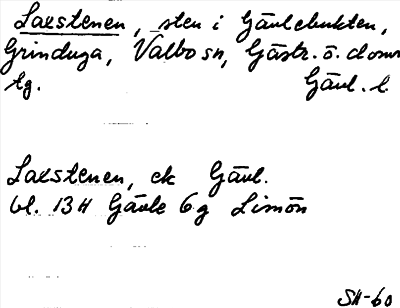 Laxstenen, sten i Gävlebukten,
Grinduga, Valbo sn, Gästr. ö. doms
tg. Gävl. l.
Laxstenen, ek Gävl.
bl. 13H Gävle 6g Limön
SH-60